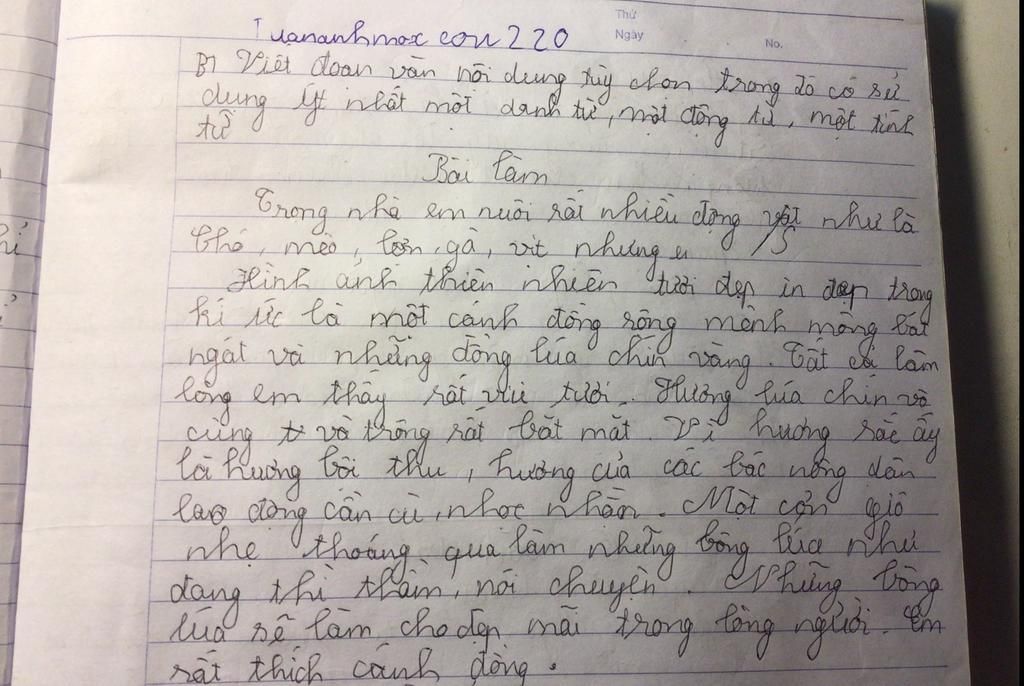 Thứ
Ngày
No.
Tuananhmoxcon220
B1 Viết đoan văn nôi dung tùy chon trong đó có sử
dụng ít nhất một danh từ, một động từ, một tính
từ
Bài làm
Trong nhà em nuôi rất nhiều động vật như là
thỏ, mèo, lợn, gà, vịt nhưng
Hình ảnh thiên nhiên tươi đẹp in đẹp trong
kí ức là một cánh đồng rộng mênh mông bát
ngát và những đồng lúa chín vàng. Tất cả làm
lòng em thấy rất vui tươi. Hương lúa chín vô
cùng và trông rất bắt mắt. Vì hương sắc ấy
là hương bôi thu, hương của các bác nông dân
lao động cần cù, nhọc nhằn. Một cơn gió
nhẹ thoáng qua làm những bông lúa như
đang thì thầm, nói chuyện. Những bông
lúa sẽ làm cho đẹp mãi trong lòng người. Em
rất thích cánh đồng.